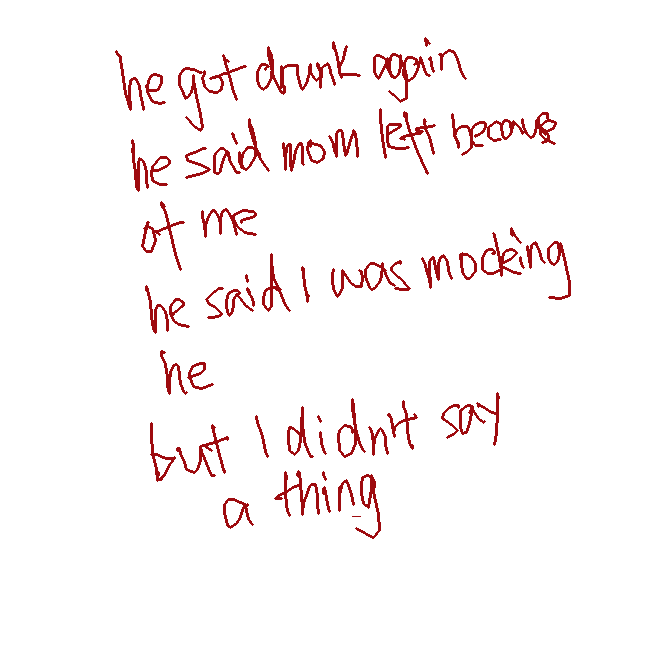 he got drunk again
he said mom left because
of me
he said I was mocking
he
but I didn't say
a thing